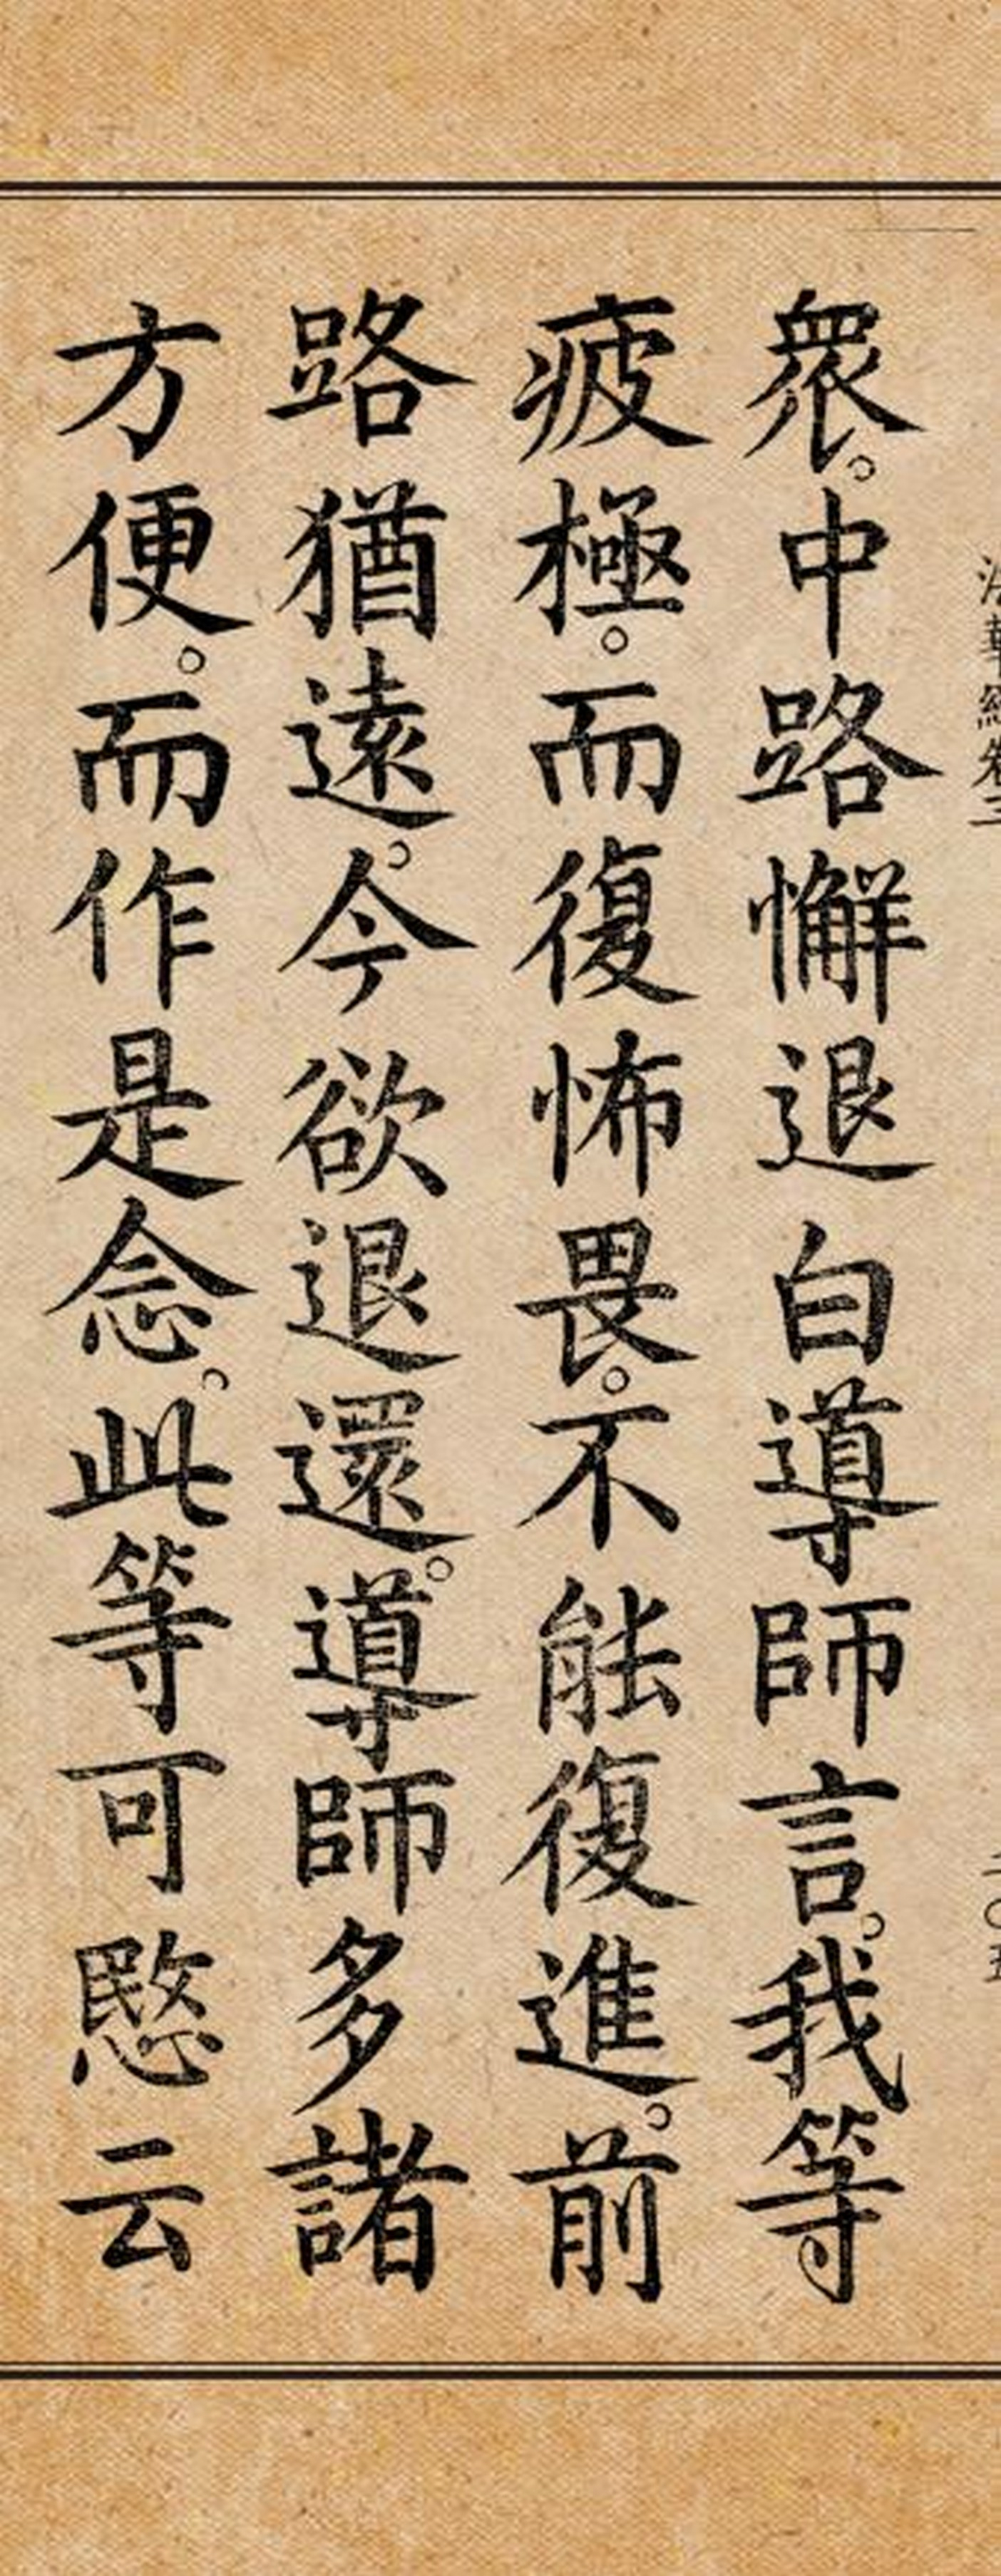 衆。中路懈退白導師言。我等
疲極。而復怖畏。不能復進。前
路猶遠。今欲退還。導師多諸
方便。而作是念。此等可愍云